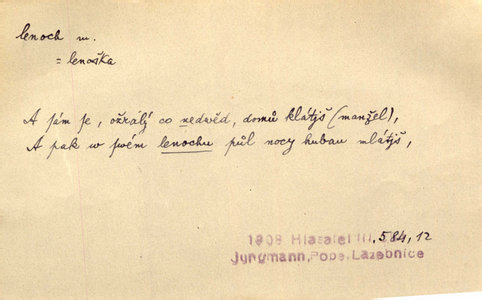 lenoch m.
= lenoška
A sám se, ožralý co nedwěd, domů klátjš (manžel),
A pak w swém lenochu půl nocy hubau mlátjš,
1808 Hlasatel III, 584, 12
Jungmann, Pobe. Lazebnice